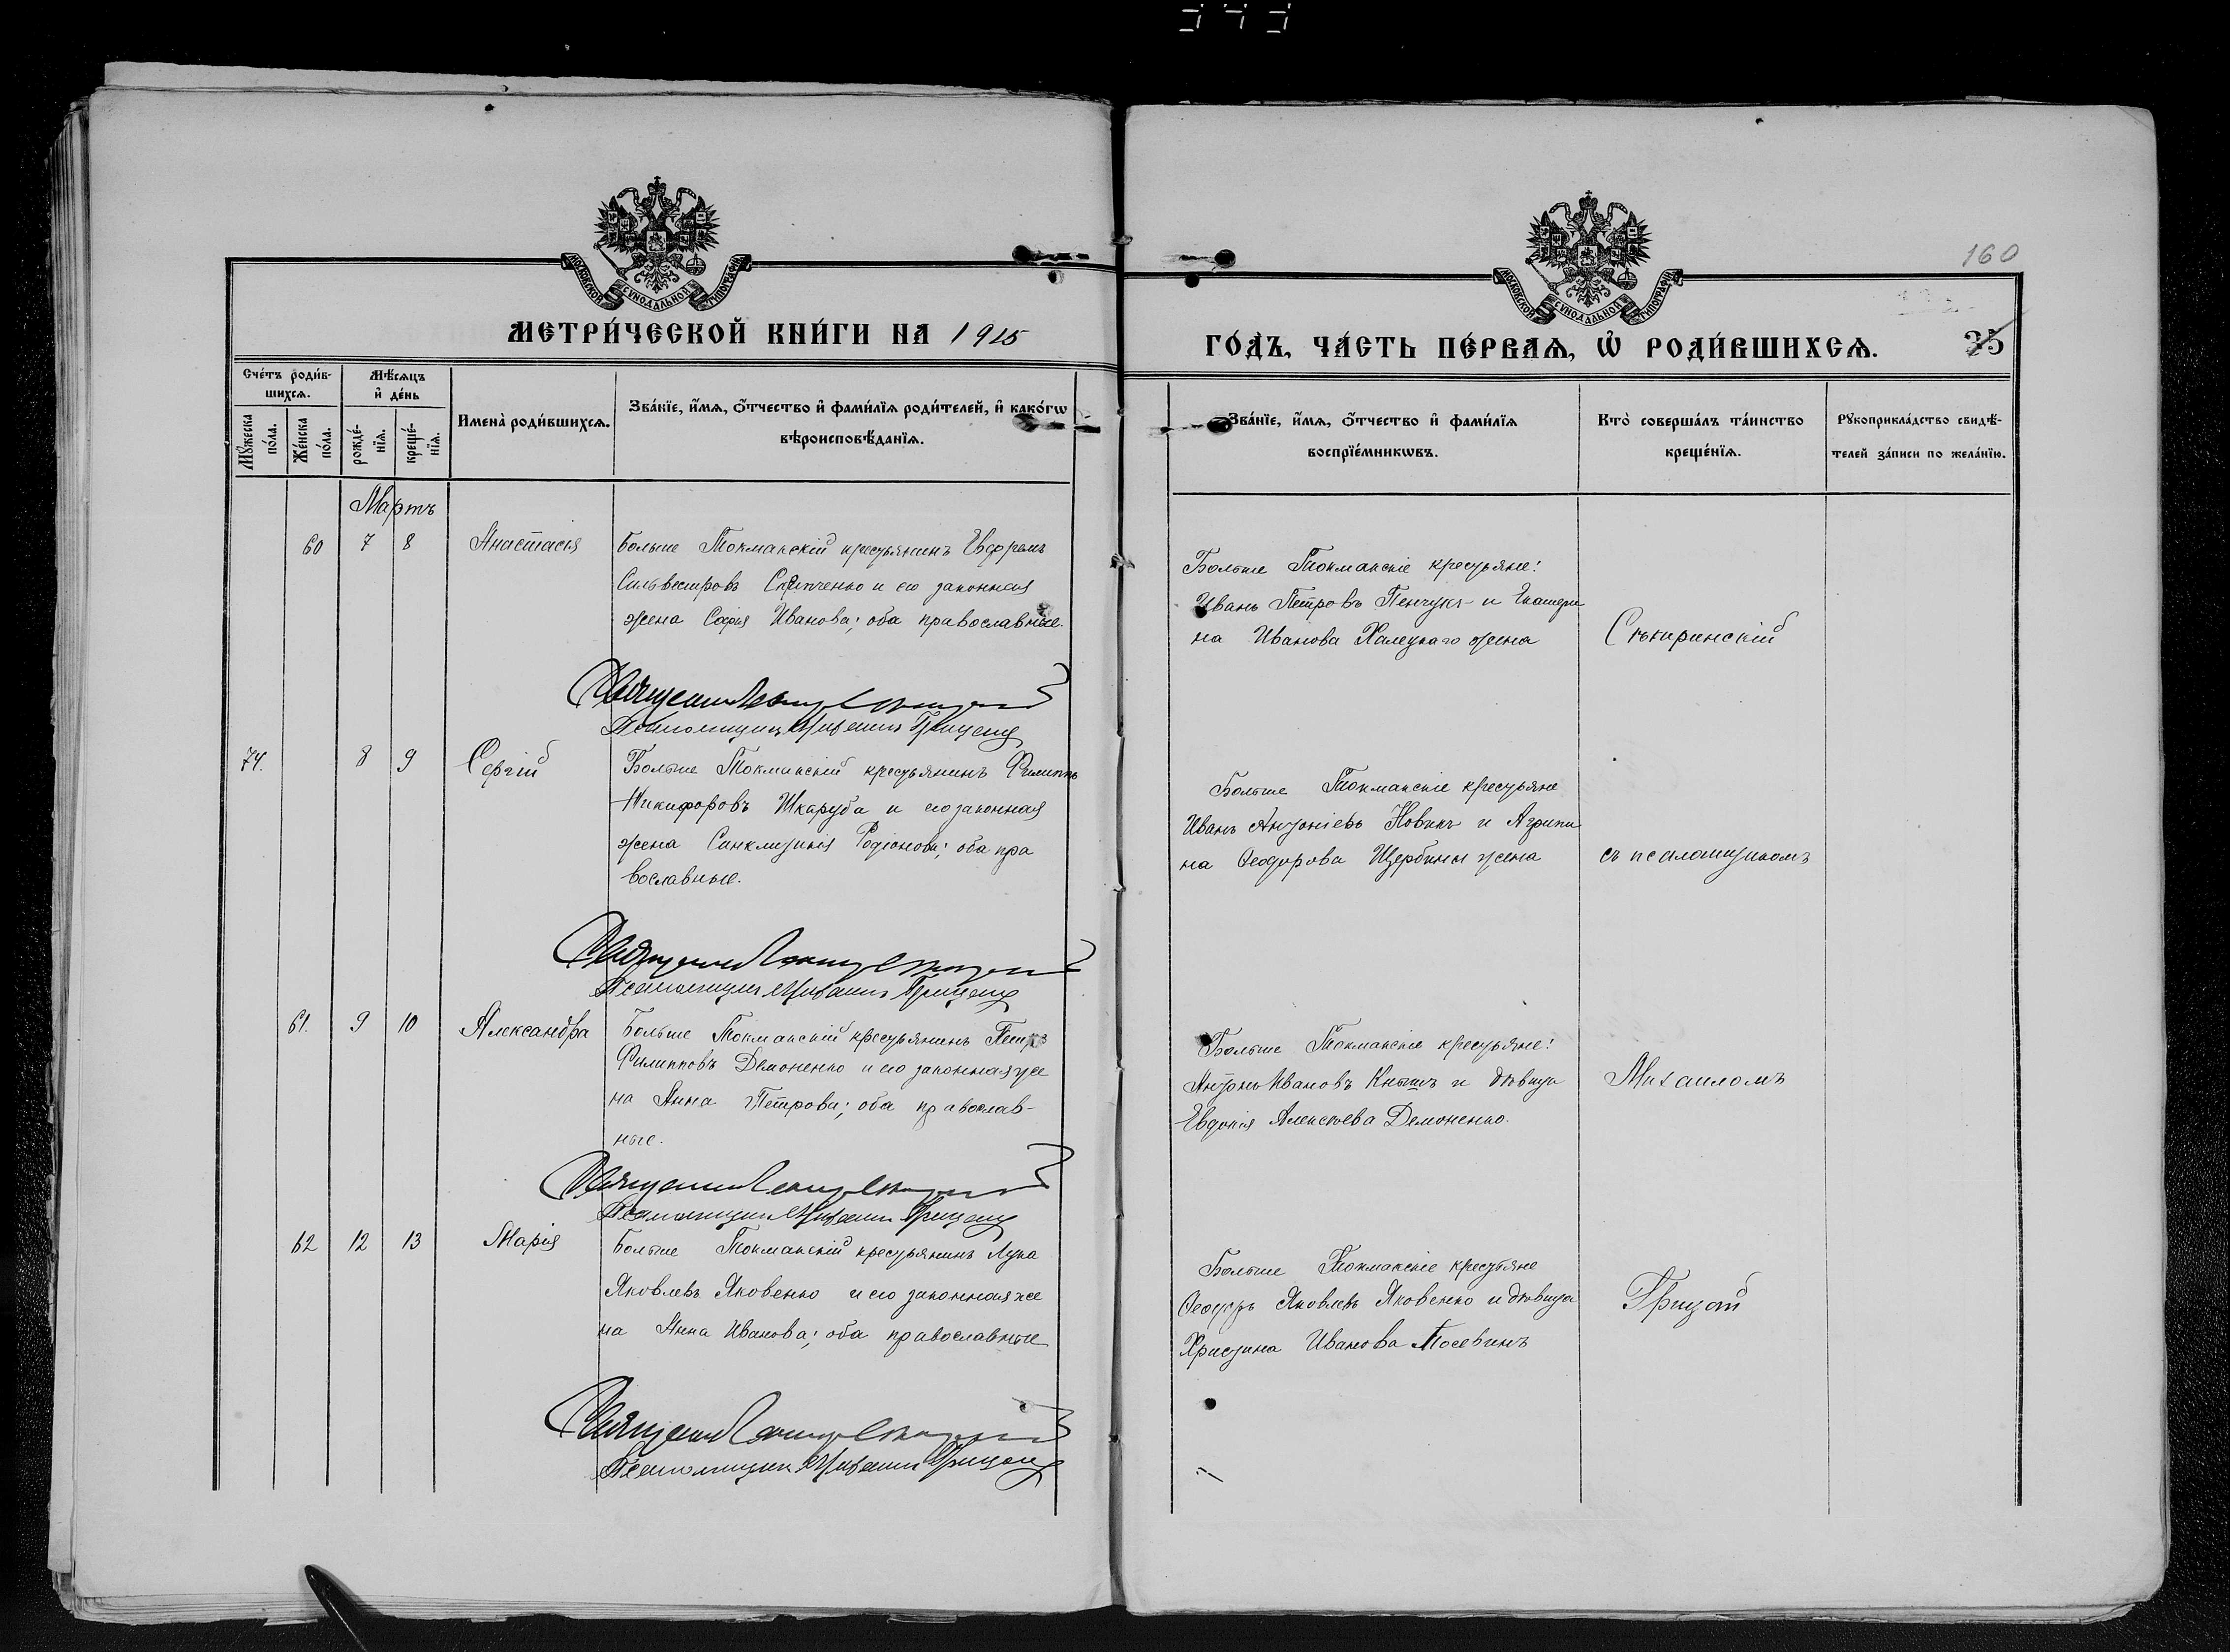 160
МОСКОВСКОЙ СѴНОДАЛЬНОЙ ТИПОГРАФІИ
МОСКОВСКОЙ СѴНОДАЛЬНОЙ ТИПОГРАФІИ
МЕТРИ́ЧЕСКОЙ КНИ́ГИ НА 1915
ГО́ДЪ, ЧА́СТЬ ПЕ́РВАѦ, Ѡ҆ РОДИ́ВШИХСѦ.
35
Сче́тъ роди́в-
шихсѧ.
Мꙋ́жеска
по́ла.
Же́нска
по́ла.
Мѣ́сѧцъ
и҆ де́нь
рожде́-
нїѧ.
креще́-
нїѧ.
Имена̀ роди́вшихсѧ.
Зва́нїе, и҆́мѧ, ѻ҆́тчество и҆ фами́лїѧ роди́телей, и҆ како́гѡ
вѣроисповѣ́данїѧ.
Зва́нїе, и҆́мѧ, ѻ҆́тчество и҆ фами́лїѧ
воспрїе́мникѡвъ.
Кто̀ соверша́лъ та́инство
креще́нїѧ.
Рꙋкоприкла́дство свидѣ́-
телей за́писи по жела́нїю.
Мартъ
60 7 8 Анастасія
Больше Токмакскій крестьянинъ Евфремъ
Сильвестровъ и его законная
жена Софія Иванова; оба православные.
Больше Токмакскіе крестьяне:
Иванъ Петровъ Пенчукъ и Екатери
на Иванова Халецкаго жена
Скъкиринскій
74. 8 9 Сергій
Больше Токмакскій крестьянинъ Филиппъ
Никифоровъ Шкаруба и его законная
жена Синклитикія Родіонова; оба пра
вославные.
Больше Токмакскіе крестьяне
Иванъ Антоніевъ Новикъ и Агрипи
на Феодорова Щербины жена
съ псаломщикомъ
61. 9 10 Александра
Больше Токмакскій крестьянинъ Петръ
Филипповъ Демоненко и его законная же
на Анна Петрова; оба православ-
ные.
Больше Токмакскіе крестьяне:
Антонъ Ивановъ Кнышъ и дѣвица
Евдокія Алексѣева Демоненко.
Михаиломъ
62 12 13 Марія
Больше Токмакскій крестьянинъ Лука
Яковлевъ Яковенко и его законная же
на Анна Иванова; оба православные
Больше Токмакскіе крестьяне
Феодоръ Яковлевъ Яковенко и дѣвица
Христина Иванова Посевинъ
Грицай